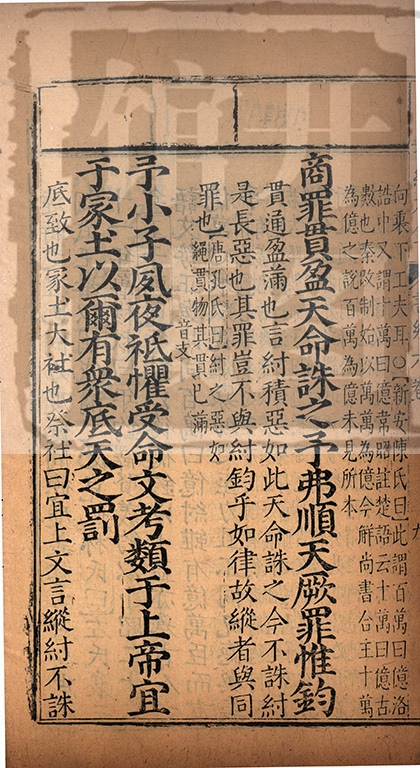 向裏下工夫耳○新安陳氏曰此謂百萬曰億洛
誥中又謂十萬曰億韋昭註楚語云十萬曰億古
數也秦改制始以萬萬為億今解尚書台主十萬
為億之説百萬為億未見所本
商罪貫盈天命誅之予弗順天厥罪惟鈞
貫通盈滿也言紂積惡如此天命誅之今不誅紂
是長惡也其罪豈不與紂鈞乎如律故縱者與同
罪也
唐孔氏曰紂之惡如
繩貫物其貫已滿
予小子夙夜祗懼受命文考類于上帝宜
于冢土以爾有衆厎天之罰
厎致也冢土大社也祭社曰宜上文言縱紂不誅